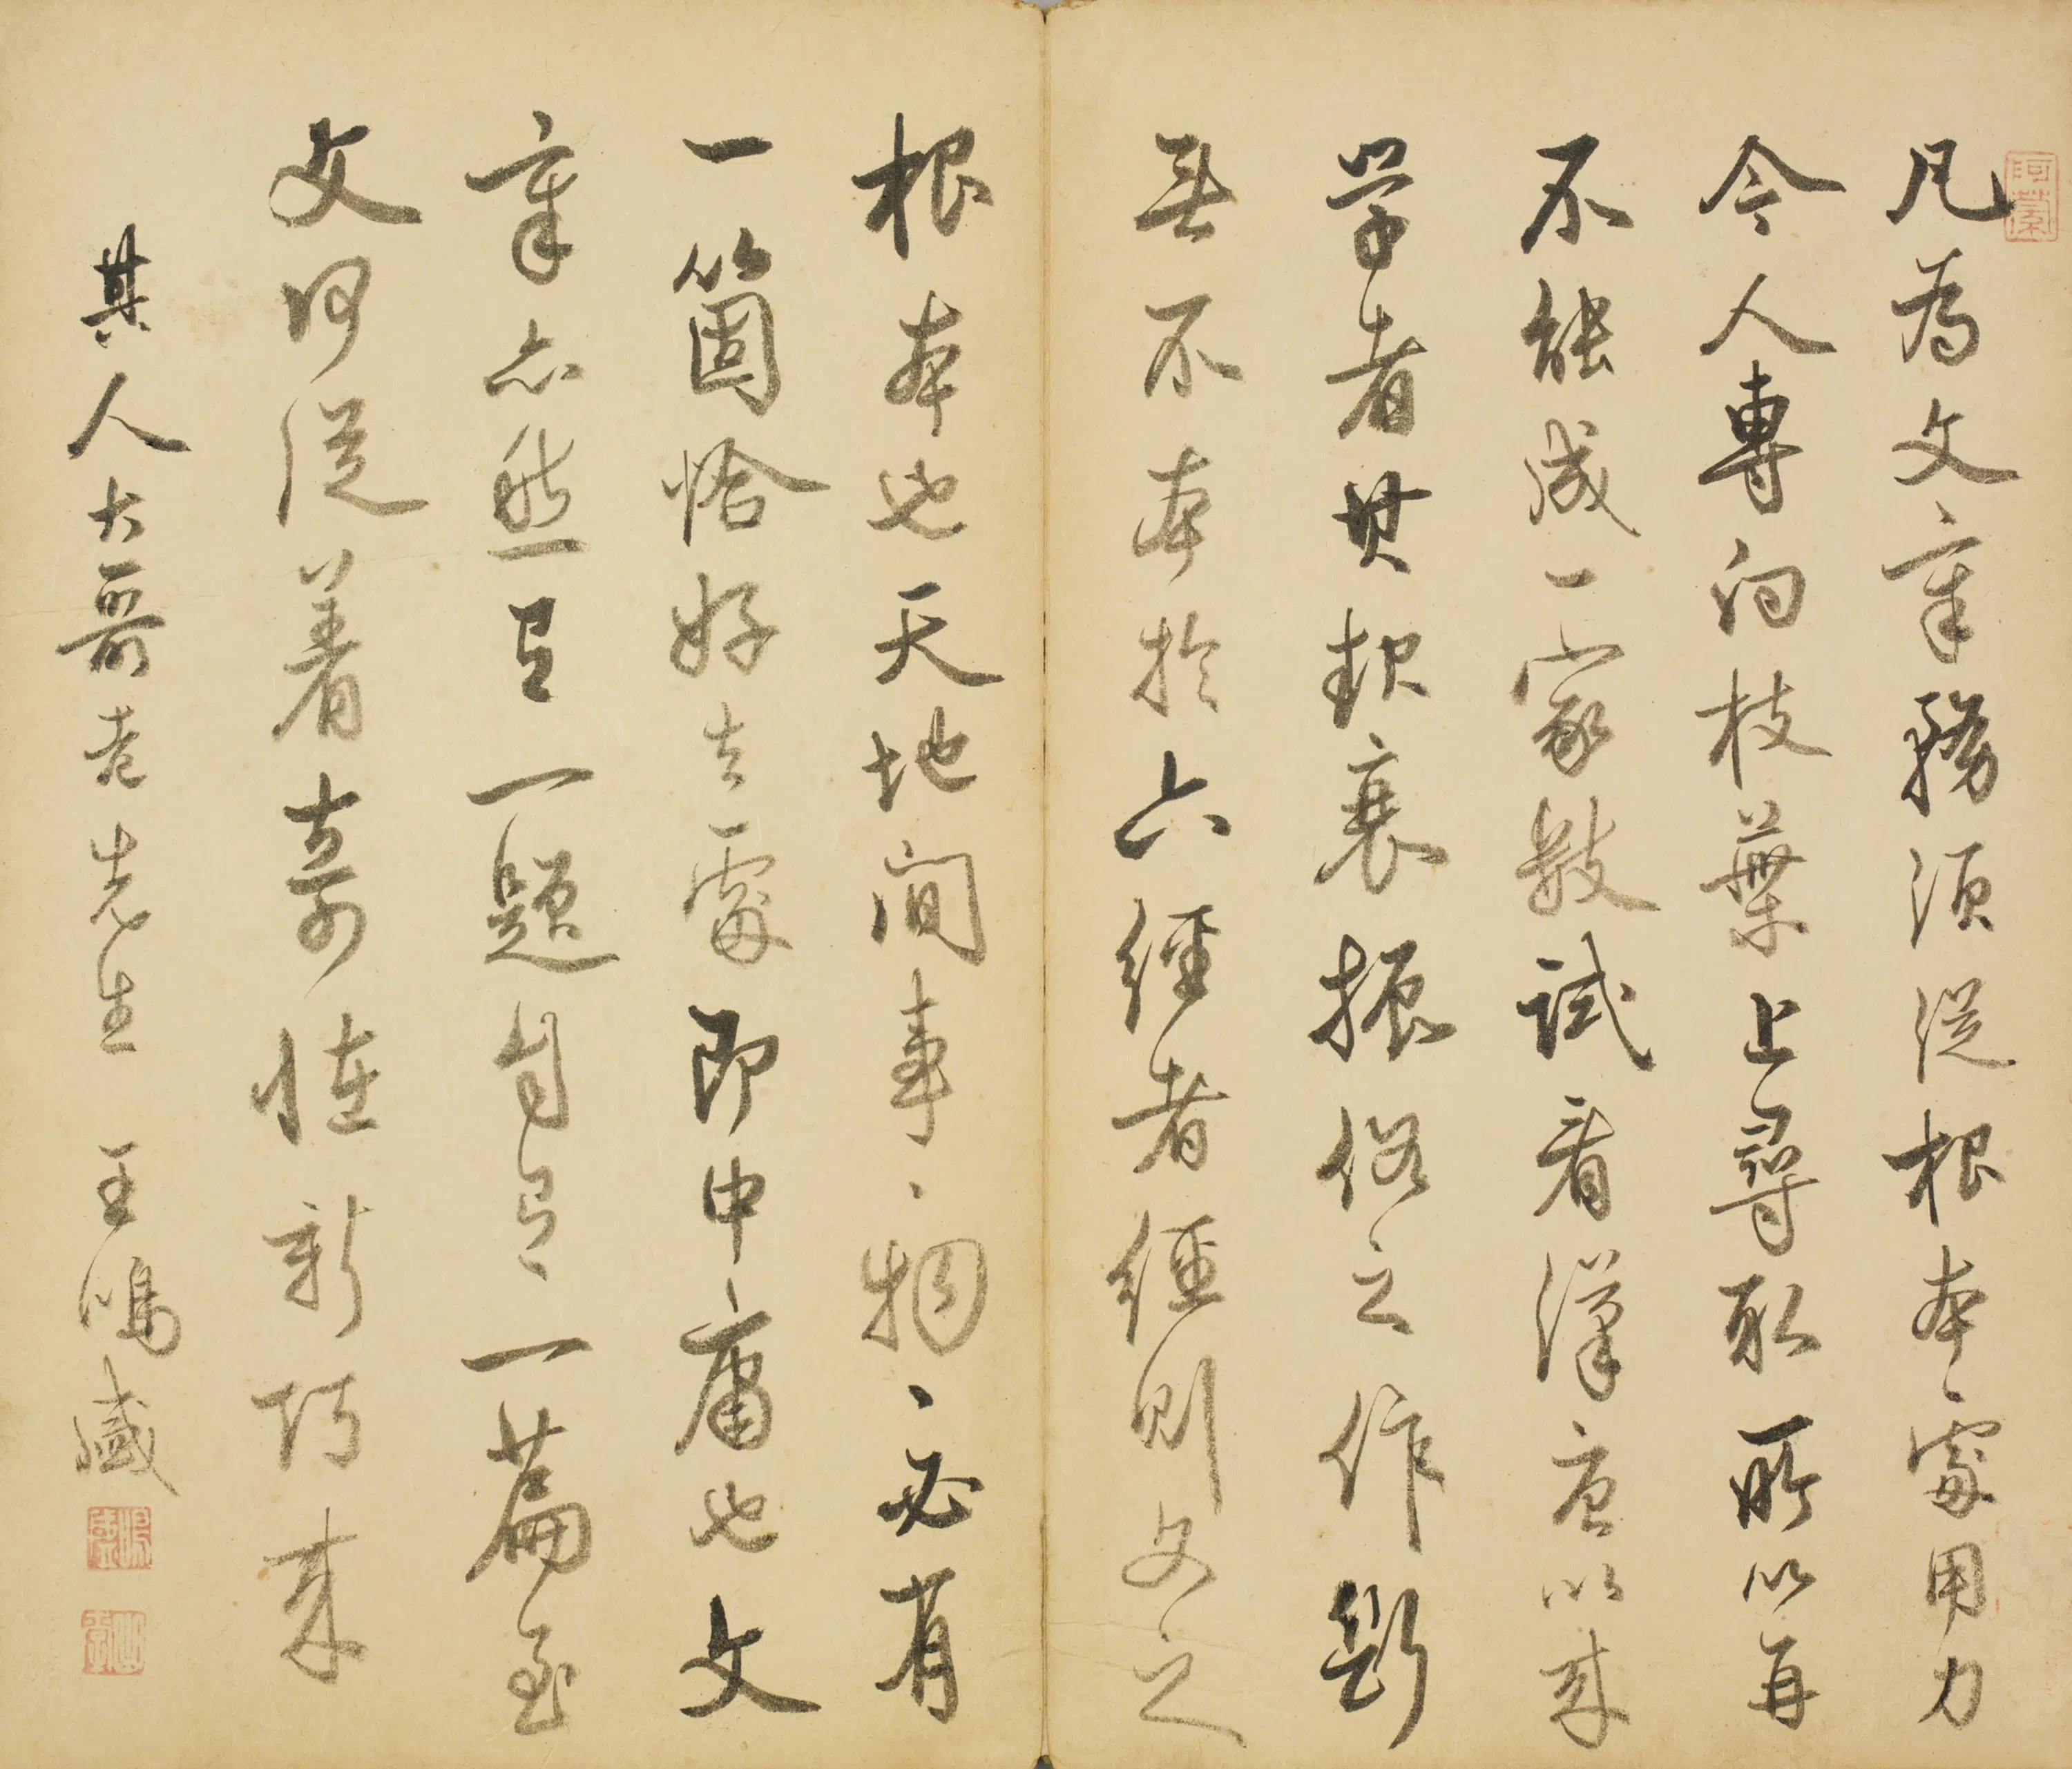 凡為文章務須從根本處用力
今人專向枝葉上尋取所以再
不能成一家數試看漢唐以來
學者其起衰振俗之作斷
無不本於六經者經則文之
根本也天地間事、物、必有
一箇恰好去處即中庸也文
章亦然且一題自有一篇至
文何從著奇怪新巧來
其人大哥老先生 王鳴盛